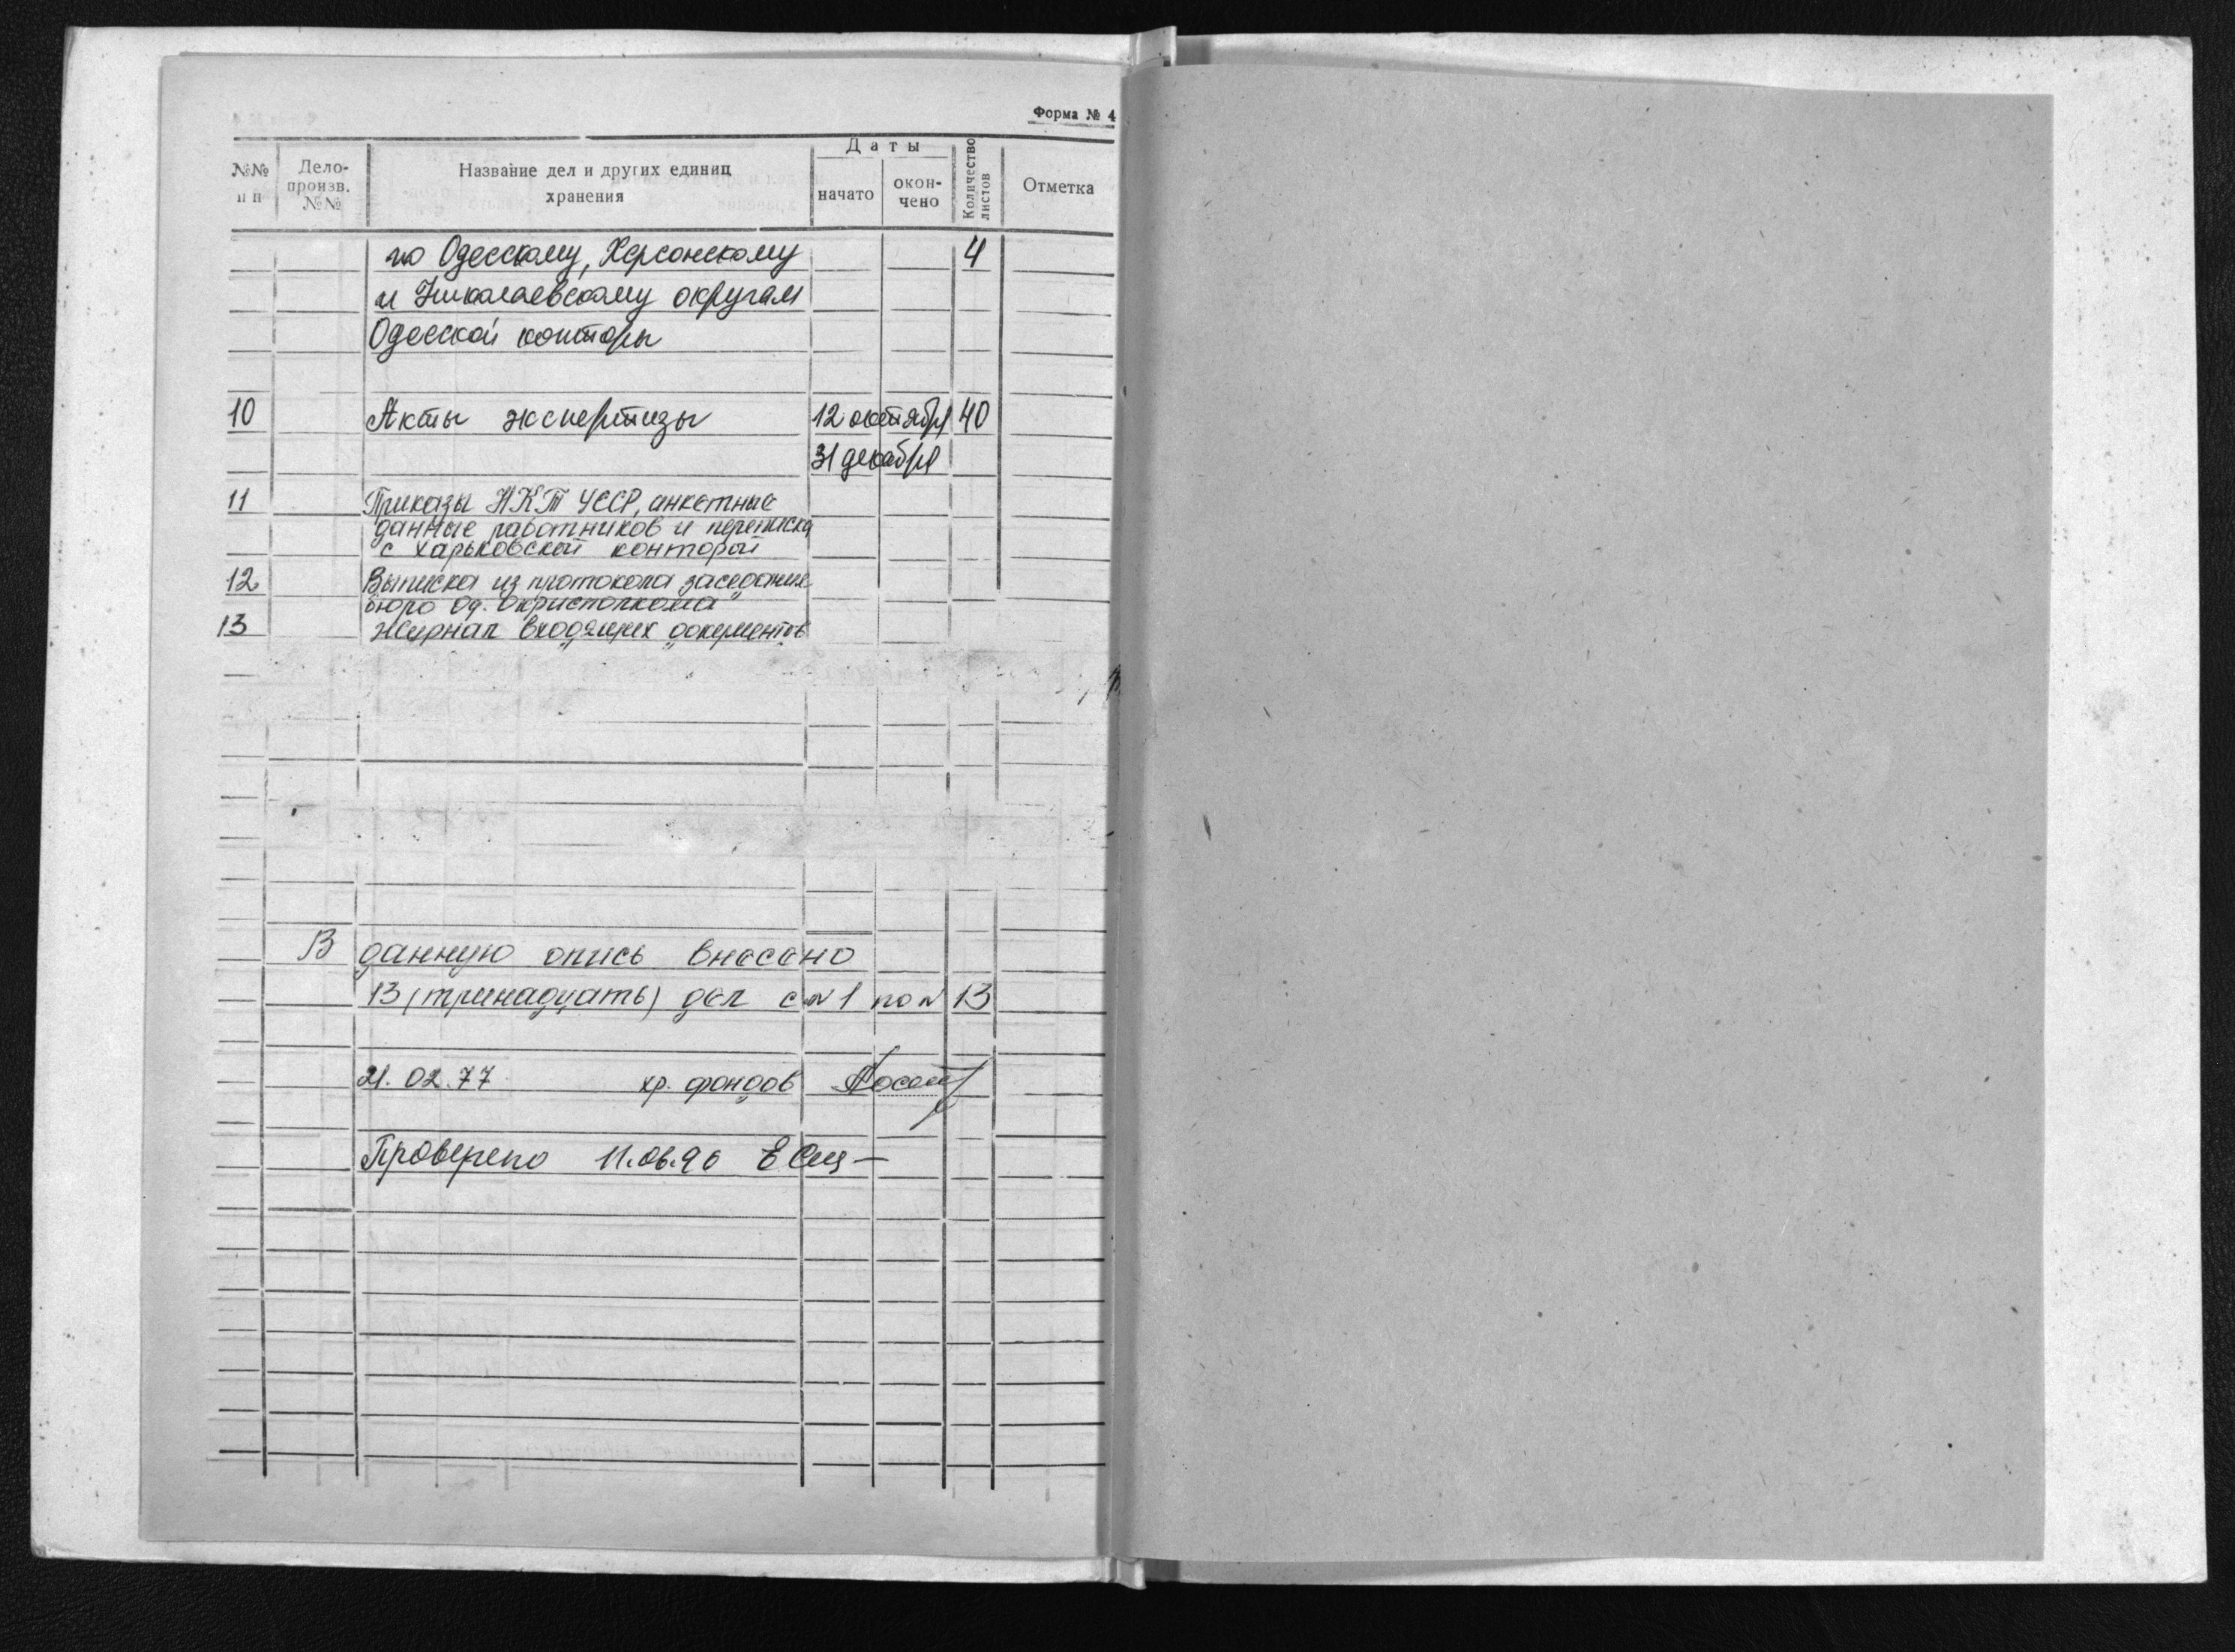 Форма № 4
№№ п п
Дело-произв. №№
Название дел и других единиц хранения
Даты
начато
окон-чено
Количество листов
Отметка
по Одесскому, Херсонскому 4
и Николаевскому округам
Одесской конторы
10 Акты экспертизы 12 октября 40
31 декабря
11 Приказы НКТ УССР, анкетные
данные работников и переписка
с Харьковской конторой
12 Выписка из протокола заседание
бюро Од. Окрисполкома
13 Журнал входящих документов
В данную опись внесено
13 (тринадцать) дел с № 1 по № 13
21.02.77 хр. фондов
Проверено 11.06.90